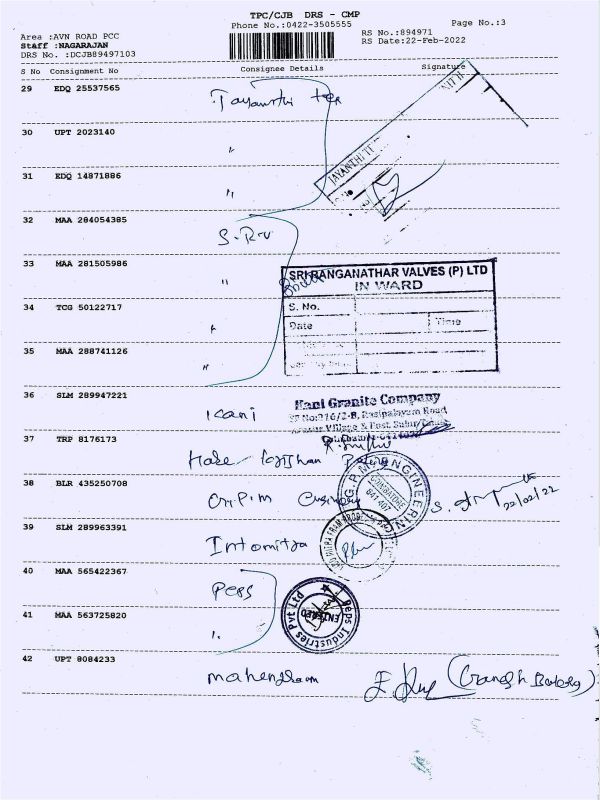 TPC/CJB DRS - CMP
Phone No.:0422-3505555
Page No.:3
Area :AVN ROAD PCC
RS No.:894971
Staff :NAGARAJAN
RS Date:22-Feb-2022
DRS No. :DCJB89497103
S No Consignment No Consignee Details Signature
29 EDQ 25537565 Jayanthi tex
30 UPT 2023140 "
JAYANTHI
31 EDQ 14871886 "
32 MAA 284054385 S.R.V
33 MAA 281505986 "
SRI RANGANATHAR VALVES (P) LTD
IN WARD
S. No.
34 TCG 50122717 "
Date Time
35 MAA 288741126 "
36 SLM 289947221 Kani
Kani Granite Company
SF No:316/2-B, Rasipalayam Road
Village & Post, Sulur
37 TRP 8176173 Hare
38 BLR 435250708 G.P.M
G.P.M ENGINEERING
COIMBATORE
641 407
22/02/22
39 SLM 289963391 Intomitra
40 MAA 565422367 Peps
41 MAA 563725820 "
Peps Industries Pvt Ltd
ENTERED
42 UPT 8084233 mahendran